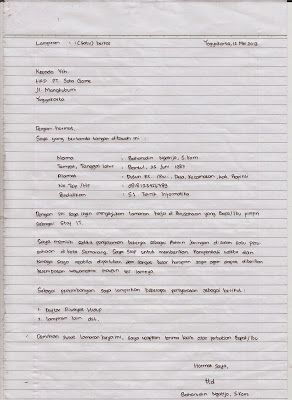 Lampiran : 1 (Satu) berkas Yogyakarta, 12 Mei 2013
Kepada Yth.
HRD PT. Solo Game
Jl. Mangkubumi
Yogyakarta
Dengan hormat,
Saya yang bertanda tangan dibawah ini :
Nama : Baharudin Ngatijo, S.Kom
Tempat, Tanggal Lahir : Bantul, 25 Juni 1987
Alamat : Dusun Rt. /Rw. , Desa, Kecamatan, Kab, Provinsi
No Telp /HP
Pendidikan : S1 Teknik Informatika
Dengan ini saya ingin mengajukan lamaran kerja di Perusahaan yang Bapak/Ibu pimpin
sebagai Staf IT.
Saya memiliki sedikit pengalaman bekerja sebagai Admin Jaringan di salah satu peru-
sahaan di kota Semarang. Saya siap untuk memberikan
tenaga saya apabila dibutuhkan dan sangat besar harapan saya agar dapat diberikan
kesempatan wawancara maupun tes lainnya.
Sebagai pertimbangan saya lampirkan beberapa persyaratan sebagai berikut :
1. Daftar Riwayat Hidup
2. lampiran lain dst.
Demikian surat lamaran kerja ini, saya ucapkan terima kasih atas perhatian Bapak/Ibu
Hormat Saya,
ttd
Baharudin Ngatijo, S.Kom